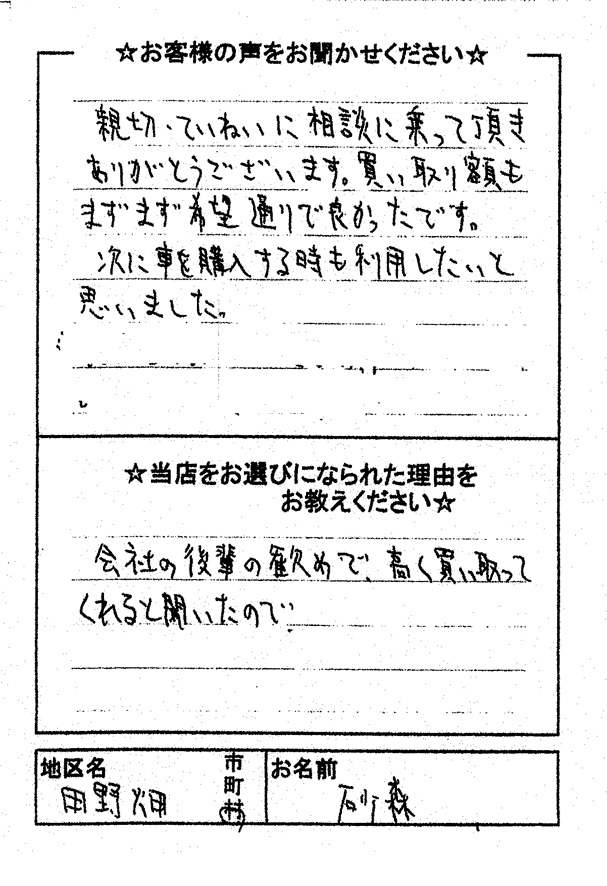 ☆お客様の声をお聞かせください☆
親切・ていねいに相談に乗って頂き
ありがとうございます。買い取り額も
まずまず希望通りで良かったです。
次に車を購入する時も利用したいと
思いました。
☆当店をお選びになられた理由を
お教えください☆
会社の後輩の歓めで、高く買い取って
くれると聞いたので
地区名
田野畑
市
町
村
お名前
砂森